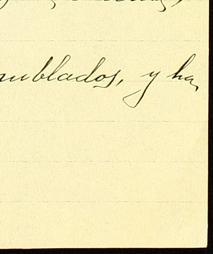 nublados, y ha